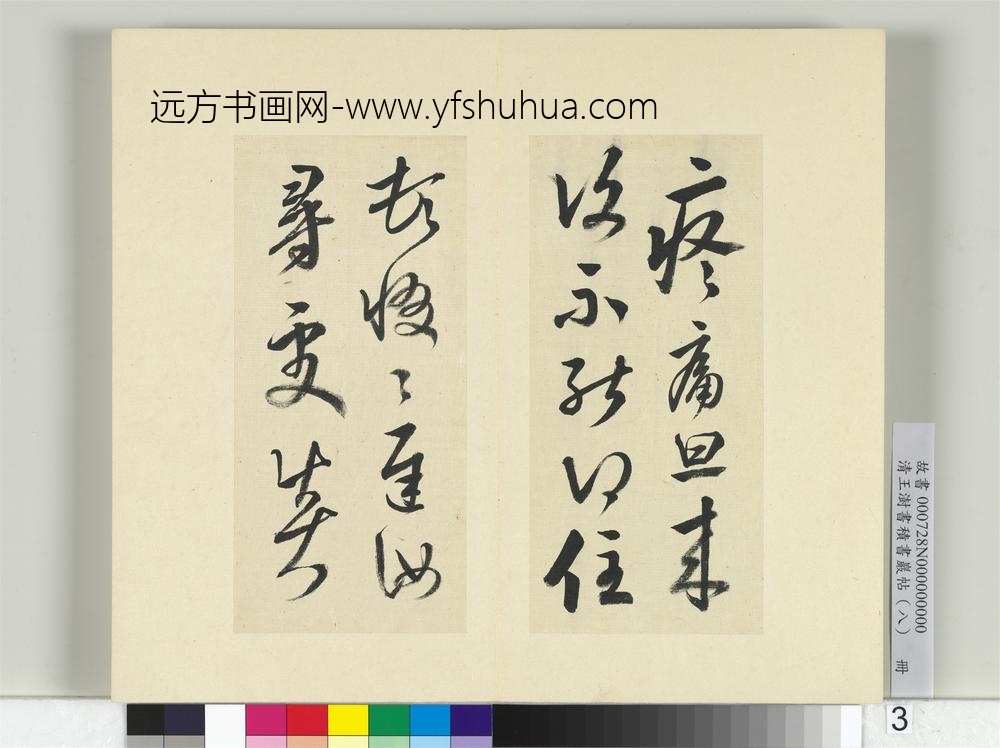 远方书画网-www.yfshuhua.com
疼痛旦来
不能得住
汝
尋更
故書 000728N000000000
清王澍書積書巖帖（八） 冊
3